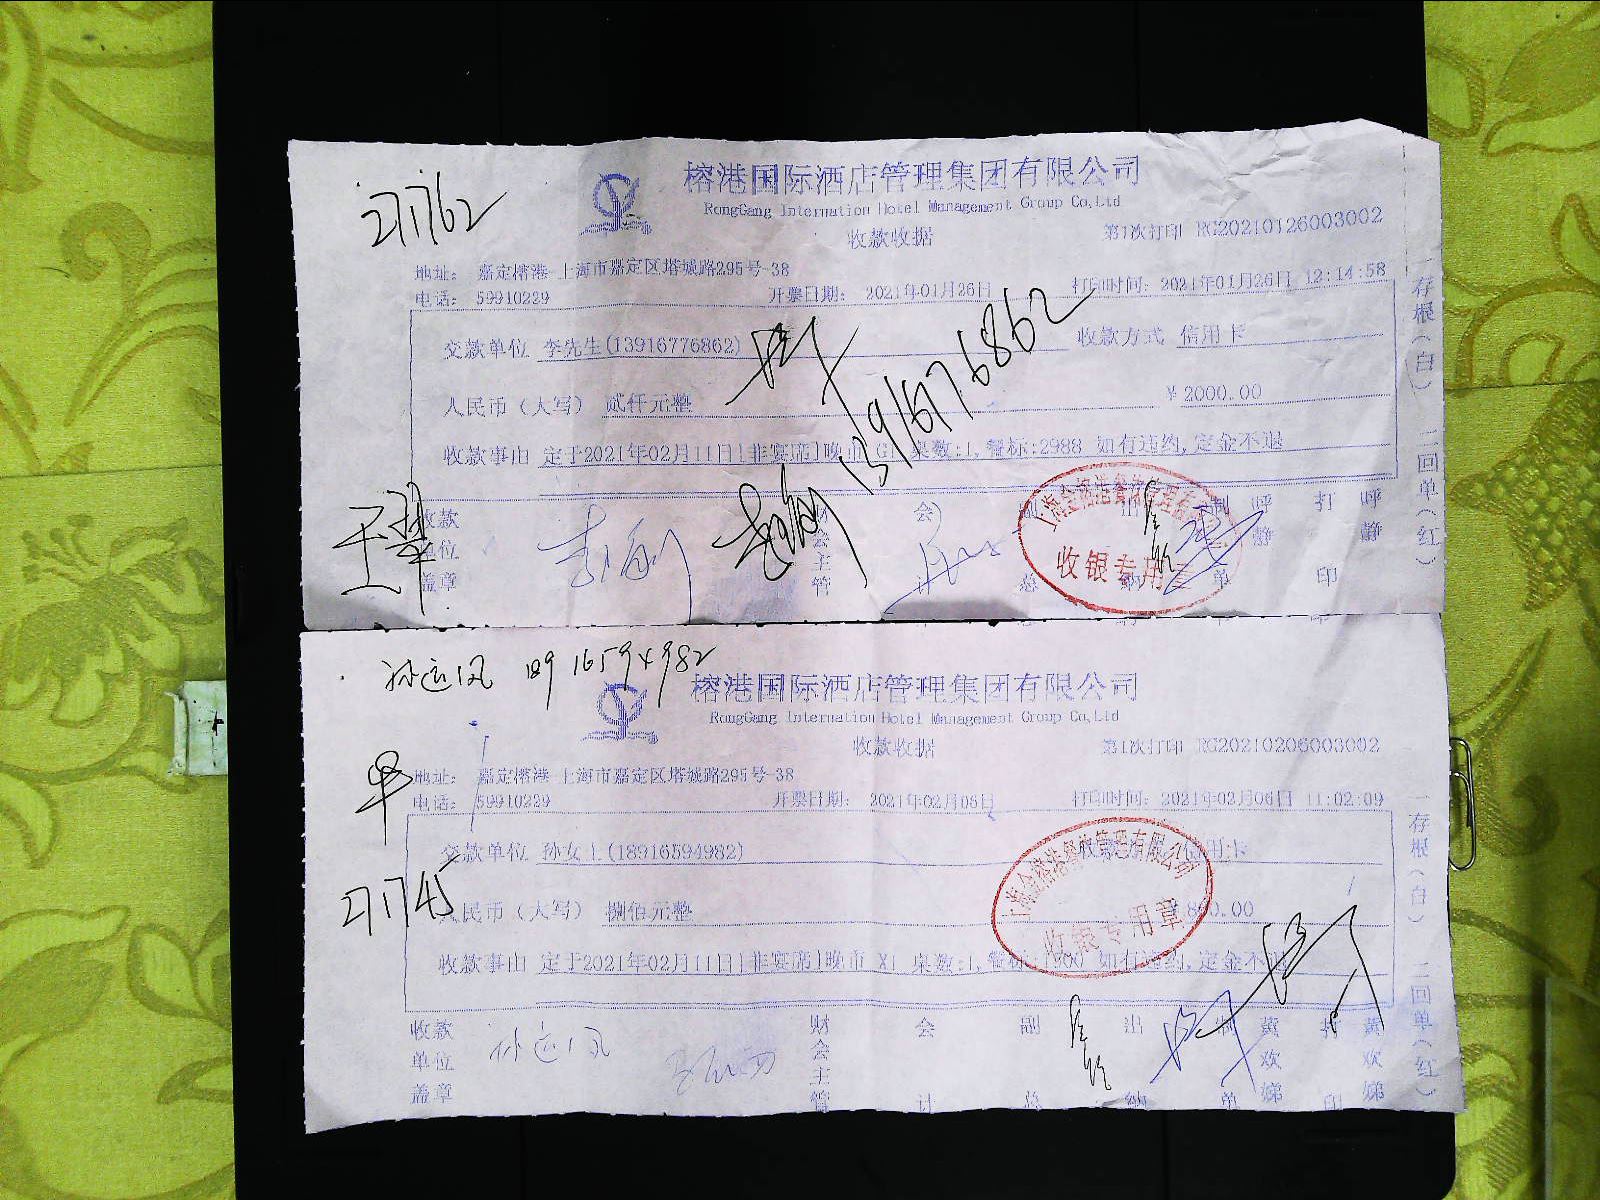 271762
榕港国际酒店管理集团有限公司
RongGang Internation Hotel Management Group Co,Ltd
收款收据
第1次打印 RG20210126003002
地址： 嘉定榕港 上海市嘉定区塔城路295号-38
电话： 59910229
开票日期： 2021年01月26日
打印时间：2021年01月26日 12:14:58
交款单位 李先生(13916776862)
收款方式 信用卡
人民币（大写） 贰仟元整
￥2000.00
13916776862
收款事由 定于2021年02月11日[非宴席]晚市 G1 桌数:1,餐标:2988 如有违约,定金不退
收款单位盖章
财会主管
会计
副总
出纳
制单
呼静
打印
呼静
收银专用章
一存根（白） 二回单（红）
孙运风 18916594982
榕港国际酒店管理集团有限公司
RongGang Internation Hotel Management Group Co,Ltd
收款收据
第1次打印 RG20210206003002
地址： 嘉定榕港 上海市嘉定区塔城路295号-38
电话： 59910229
开票日期： 2021年02月06日
打印时间：2021年02月06日 11:02:09
交款单位 孙女士(18916594982)
271745
人民币（大写） 捌佰元整
￥800.00
收银专用章
收款事由 定于2021年02月11日[非宴席]晚市 X1 桌数:1,餐标: 如有违约,定金不退
收款单位盖章
孙运风
财会主管
会计
副总
出纳
制单
黄欢娣
打印
黄欢娣
一存根（白） 二回单（红）